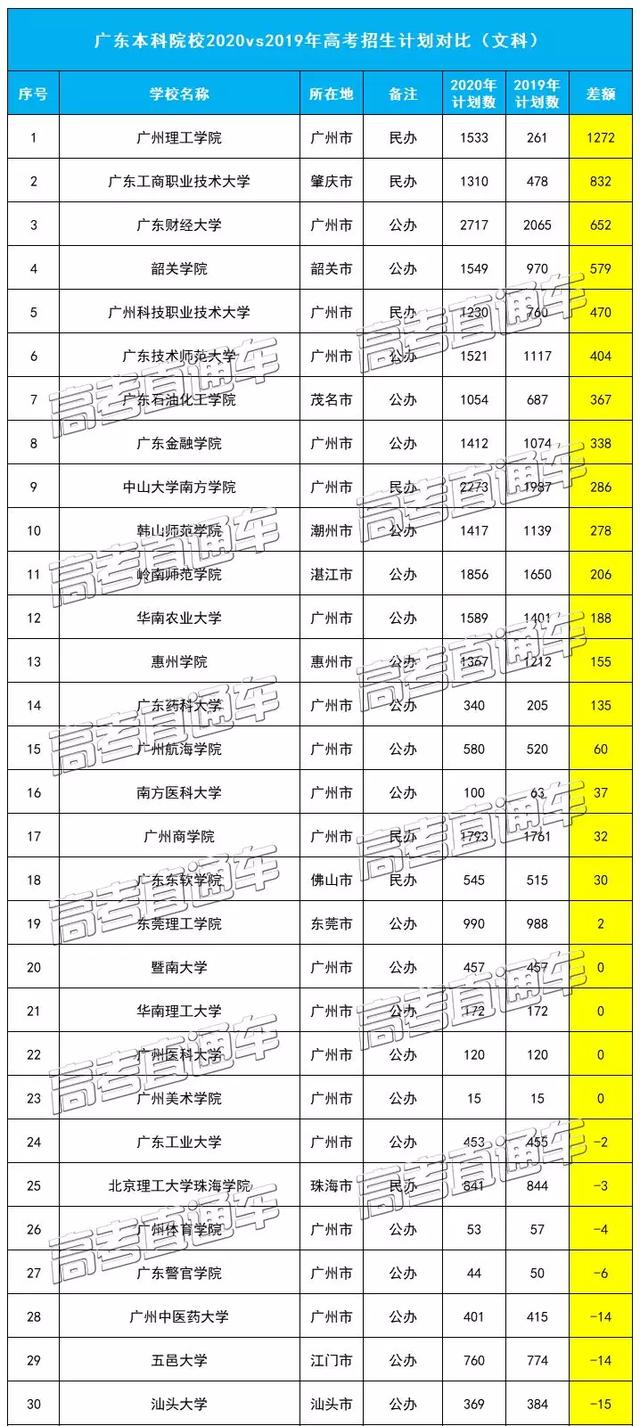 广东本科院校2020vs2019年高考招生计划对比（文科）
序号 学校名称 所在地 备注 2020年计划数 2019年计划数 差额
1 广州理工学院 广州市 民办 1533 261 1272
2 广东工商职业技术大学 肇庆市 民办 1310 478 832
3 广东财经大学 广州市 公办 2717 2065 652
4 韶关学院 韶关市 公办 1549 970 579
5 广州科技职业技术大学 广州市 民办 1230 760 470
6 广东技术师范大学 广州市 公办 1521 1117 404
7 广东石油化工学院 茂名市 公办 1054 687 367
8 广东金融学院 广州市 公办 1412 1074 338
9 中山大学南方学院 广州市 民办 2273 1987 286
10 韩山师范学院 潮州市 公办 1417 1139 278
11 岭南师范学院 湛江市 公办 1856 1650 206
12 华南农业大学 广州市 公办 1589 1401 188
13 惠州学院 惠州市 公办 1367 1212 155
14 广东药科大学 广州市 公办 340 205 135
15 广州航海学院 广州市 公办 580 520 60
16 南方医科大学 广州市 公办 100 63 37
17 广州商学院 广州市 民办 1793 1761 32
18 广东东软学院 佛山市 民办 545 515 30
19 东莞理工学院 东莞市 公办 990 988 2
20 暨南大学 广州市 公办 457 457 0
21 华南理工大学 广州市 公办 172 172 0
22 广州医科大学 广州市 公办 120 120 0
23 广州美术学院 广州市 公办 15 15 0
24 广东工业大学 广州市 公办 453 455 -2
25 北京理工大学珠海学院 珠海市 民办 841 844 -3
26 广州体育学院 广州市 公办 53 57 -4
27 广东警官学院 广州市 公办 44 50 -6
28 广州中医药大学 广州市 公办 401 415 -14
29 五邑大学 江门市 公办 760 774 -14
30 汕头大学 汕头市 公办 369 384 -15
高考直通车
高考直通车
高考直通车
高考直通车
高考直通车
高考直通车
高考直通车
高考直通车
高考直通车
高考直通车
高考直通车
高考直通车
高考直通车